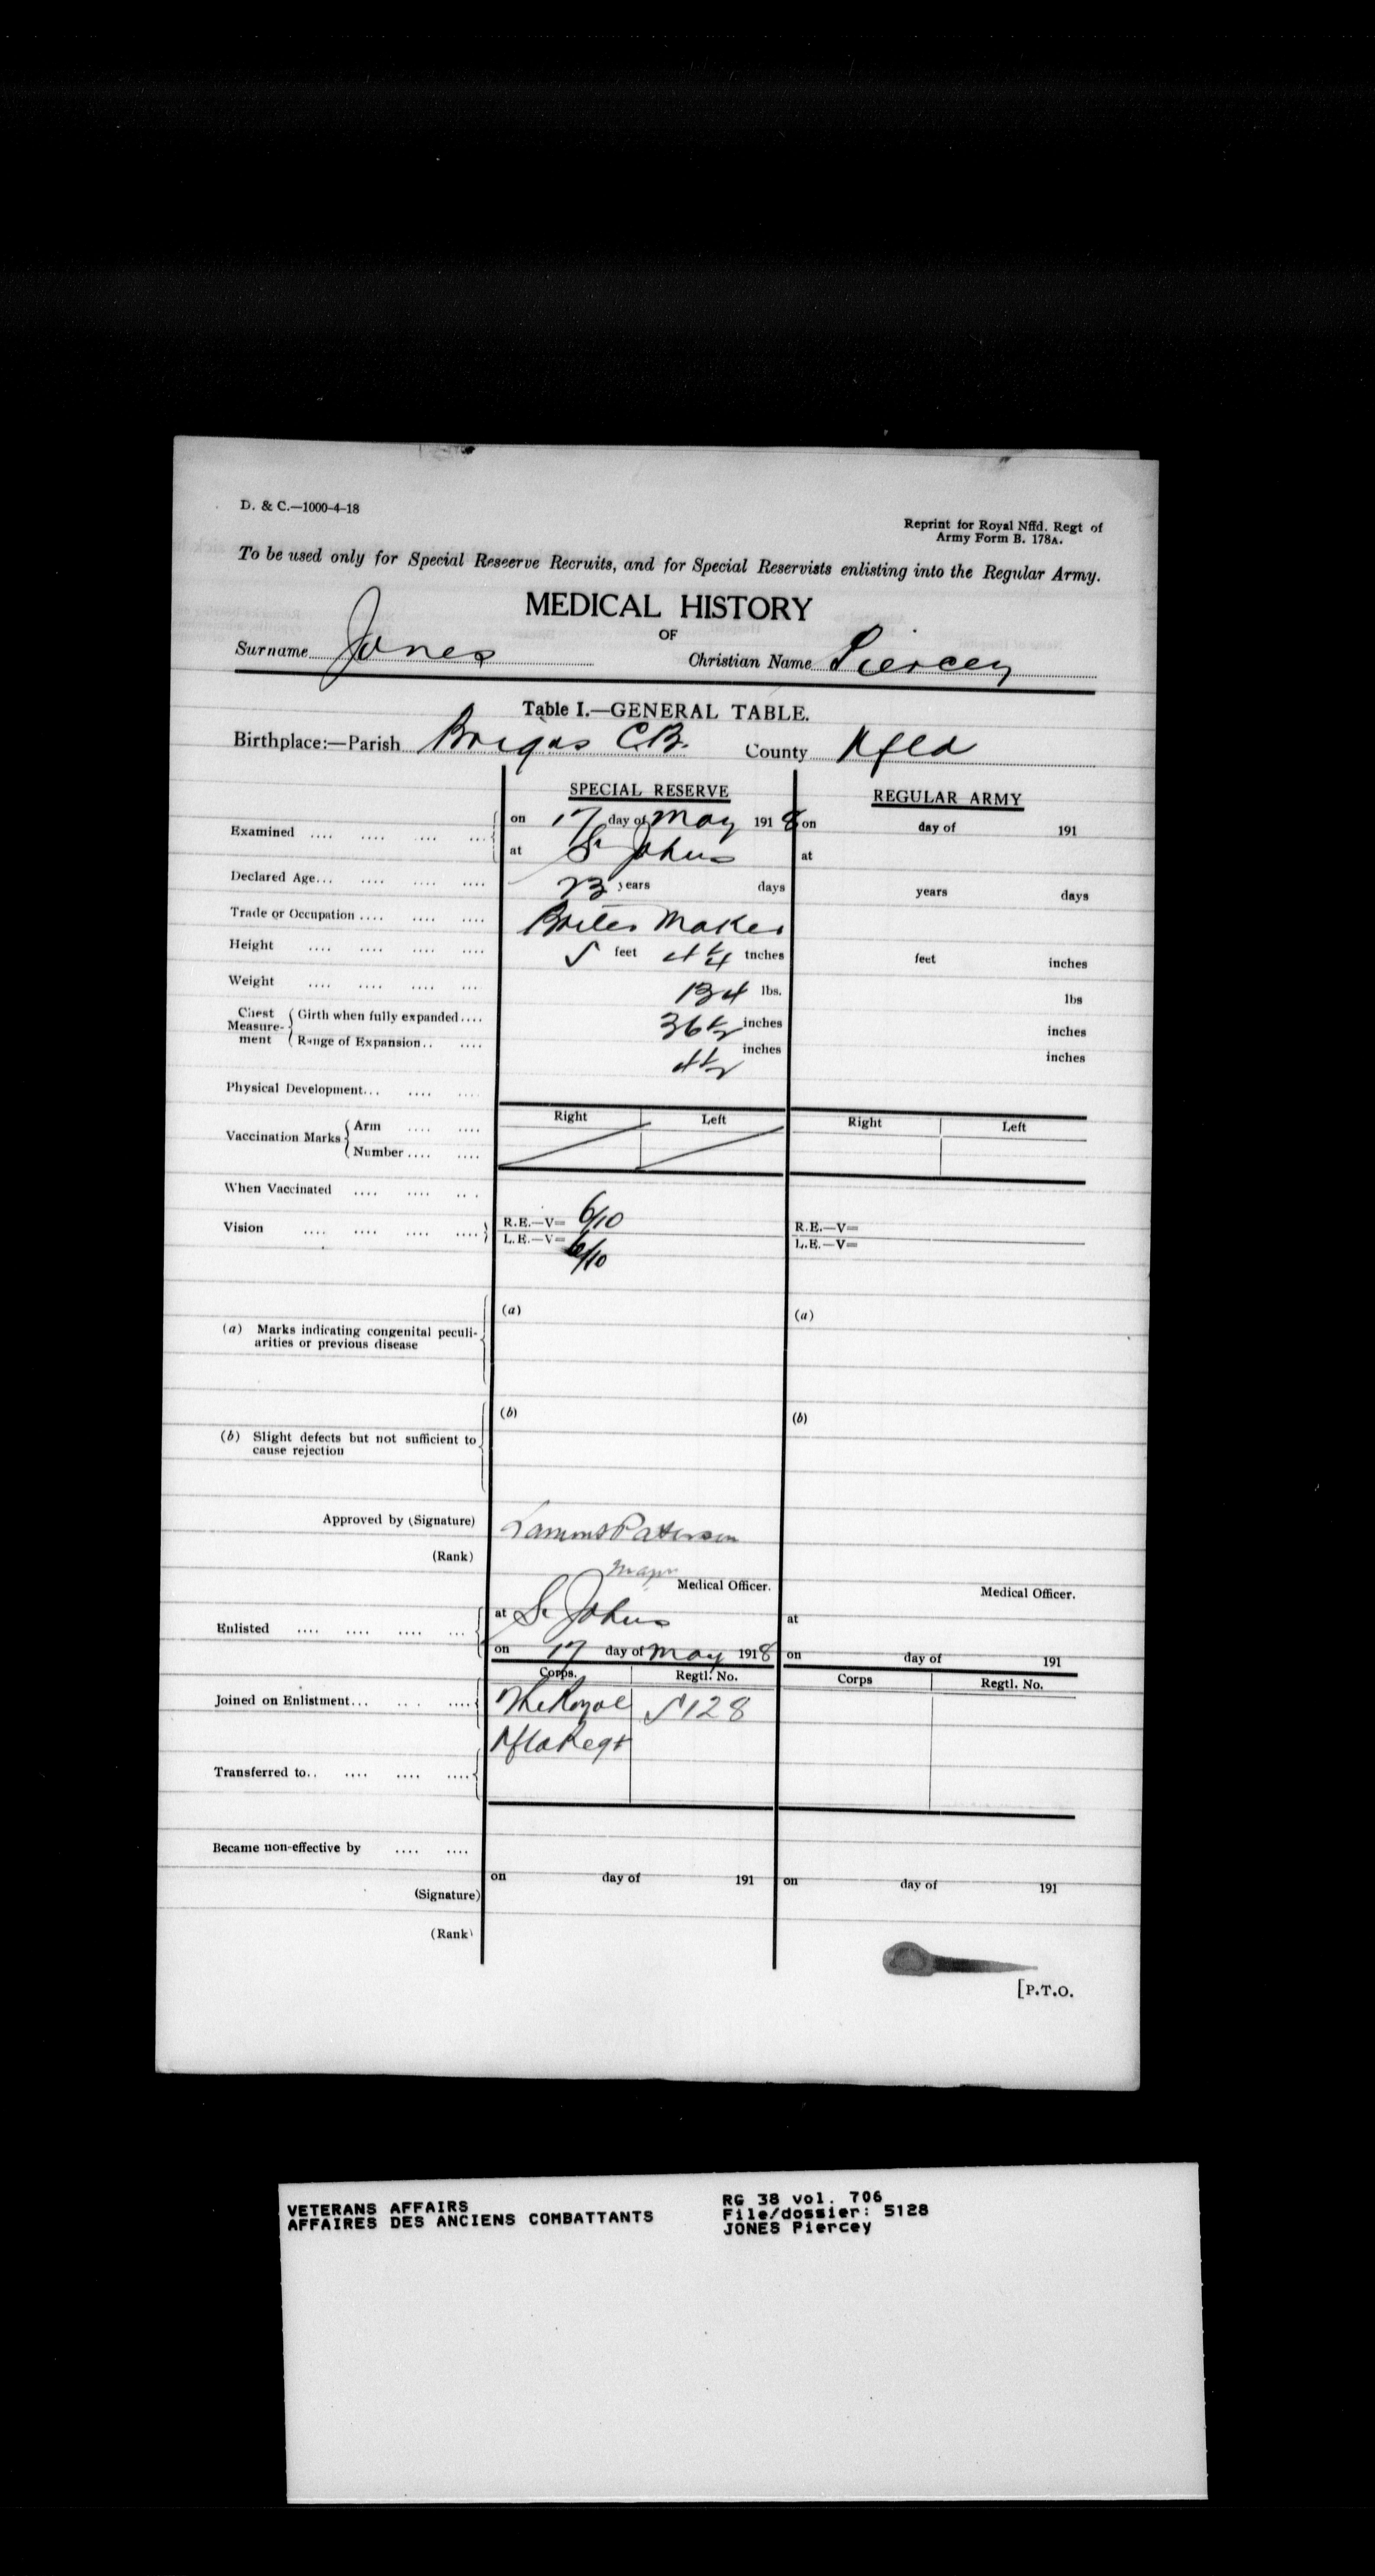 D. & C.—1000-4-18
Reprint for Royal Nffd. Regt of
Army Form B. 178A.
To be used only for Special Reseerve Recruits, and for Special Reservists enlisting into the Regular Army.
MEDICAL HISTORY
OF
Surname Jones Christian Name Piercey
Table I.—GENERAL TABLE.
Birthplace:—Parish Brigus C.B. County Nfld
SPECIAL RESERVE REGULAR ARMY
Examined .... .... .... ... on 17 day of May 1918 on day of 191
at St Johns at
Declared Age... .... .... .... 23 years days years days
Trade or Occupation .... .... .... Boiler Maker
Height .... .... .... .... 5 feet 4 1/4 inches feet inches
Weight .... .... .... ... 134 lbs. lbs
Chest Measurement Girth when fully expanded .... 36 1/2 inches inches
Range of Expansion.. .... 4 1/2 inches inches
Physical Development... .... ....
Right Left Right Left
Vaccination Marks Arm .... ....
Number .... ....
When Vaccinated .... .... .. .
Vision .... .... .... .... R.E.—V= 6/10 R.E.—V=
L.E.—V= 6/10 L.E.—V=
(a) (a)
(a) Marks indicating congenital peculi-
arities or previous disease
(b) (b)
(b) Slight defects but not sufficient to
cause rejection
Approved by (Signature) Paterson
(Rank) Major
Medical Officer. Medical Officer.
Enlisted .... .... .... ... at St Johns at
on 17 day of May 1918 on day of 191
Corps. Regtl. No. Corps Regtl. No.
Joined on Enlistment... .. . .... The Royal 5128
Nfld Regt
Transferred to.. .... .... ....
Became non-effective by .... ....
on day of 191 on day of 191
(Signature)
(Rank)
[P.T.O.
VETERANS AFFAIRS RG 38 vol. 706
AFFAIRES DES ANCIENS COMBATTANTS File/dossier: 5128
JONES Piercey